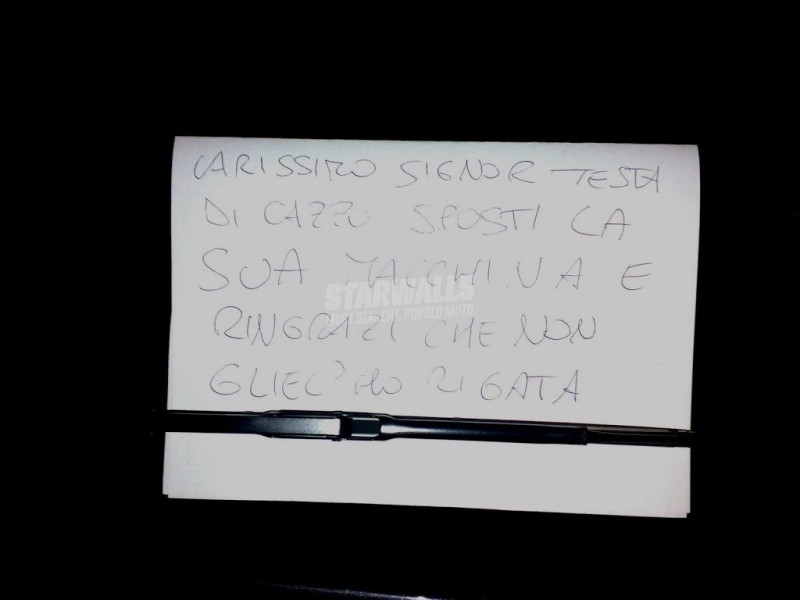 CARISSIMO SIGNOR TESTA
DI CAZZO SPOSTI LA
SUA MACCHINA E
RINGRAZI CHE NON
GLIEL'HO RIGATA
STARWALLS
MURI BIANCHI, POPOLO MUTO